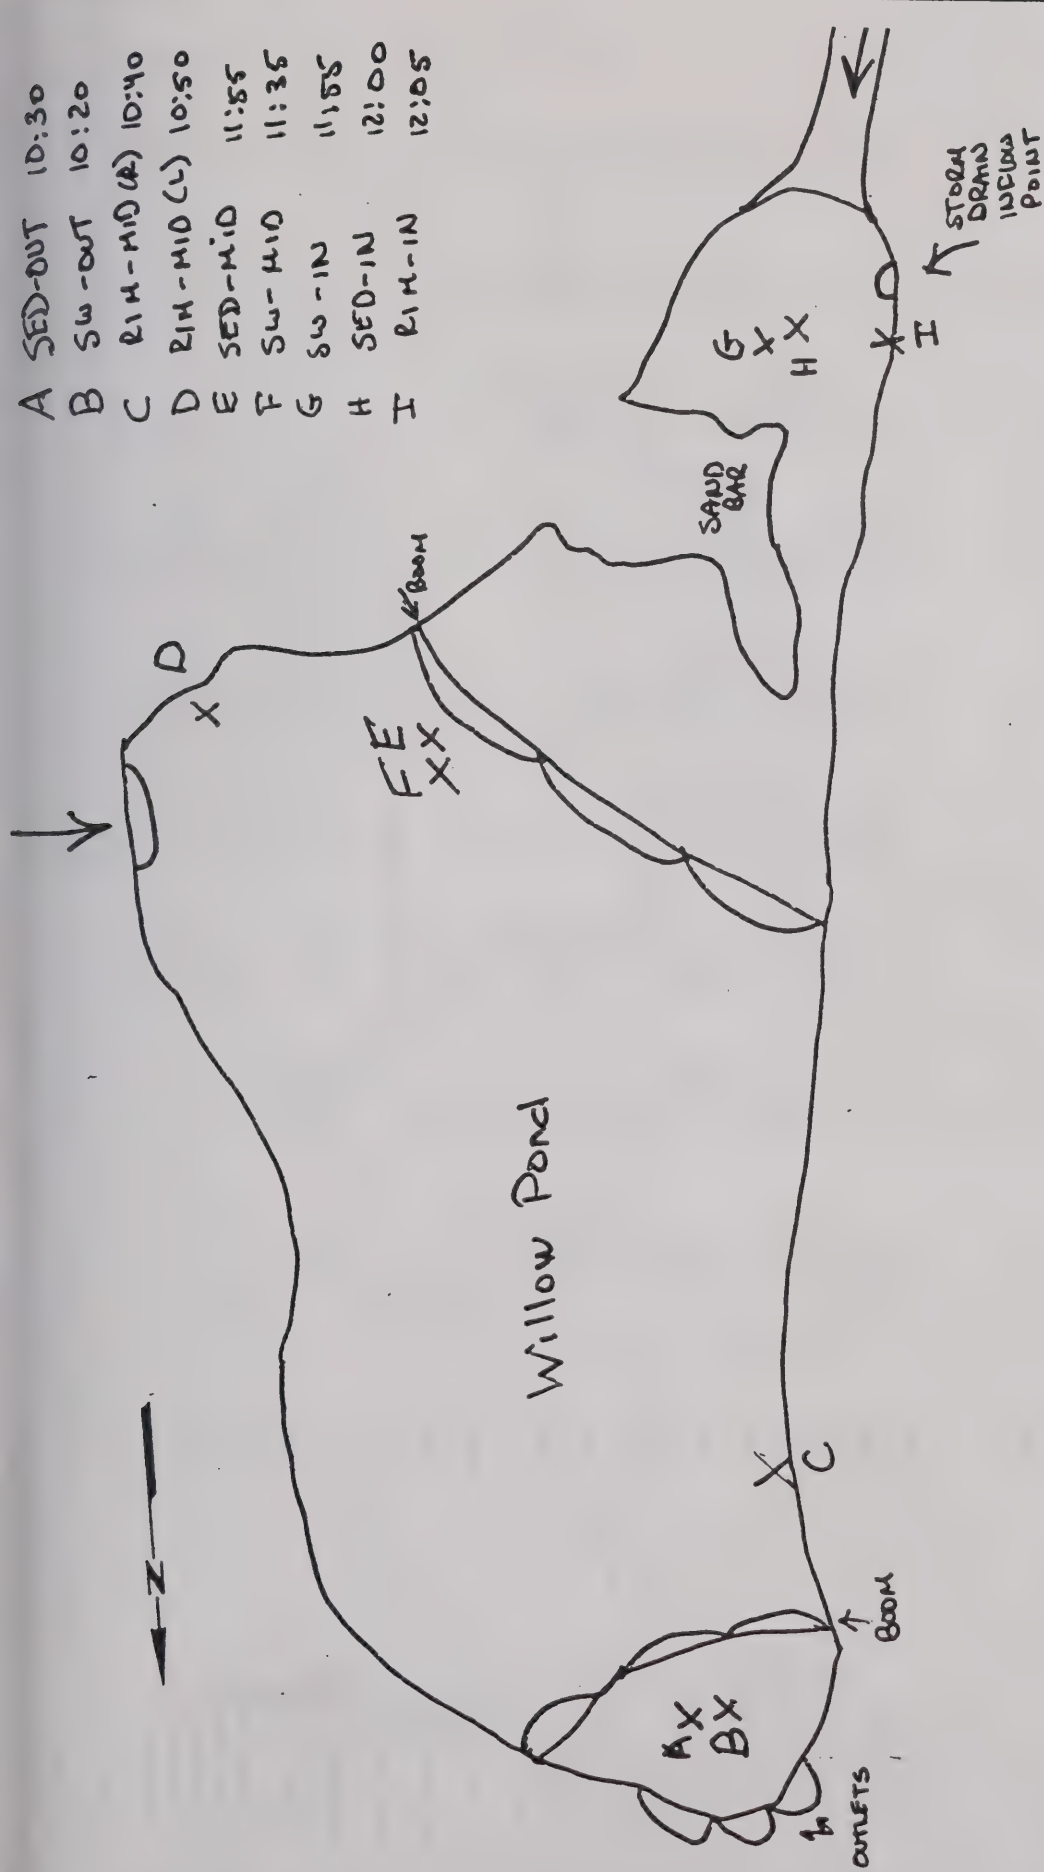 A SED-OUT 10:30
B SW-OUT 10:20
C RIM-MID (R) 10:40
D RIM-MID (L) 10:50
E SED-MID 11:55
F SW-MID 11:35
G SW-IN 11:55
H SED-IN 12:00
I RIM-IN 12:05
N
D
BOOM
F E
X X
X
SAND
BAR
G
X
H X
X
I
STORM
DRAIN
INFLOW
POINT
Willow Pond
A X
B X
X
C
BOOM
OUTLETS